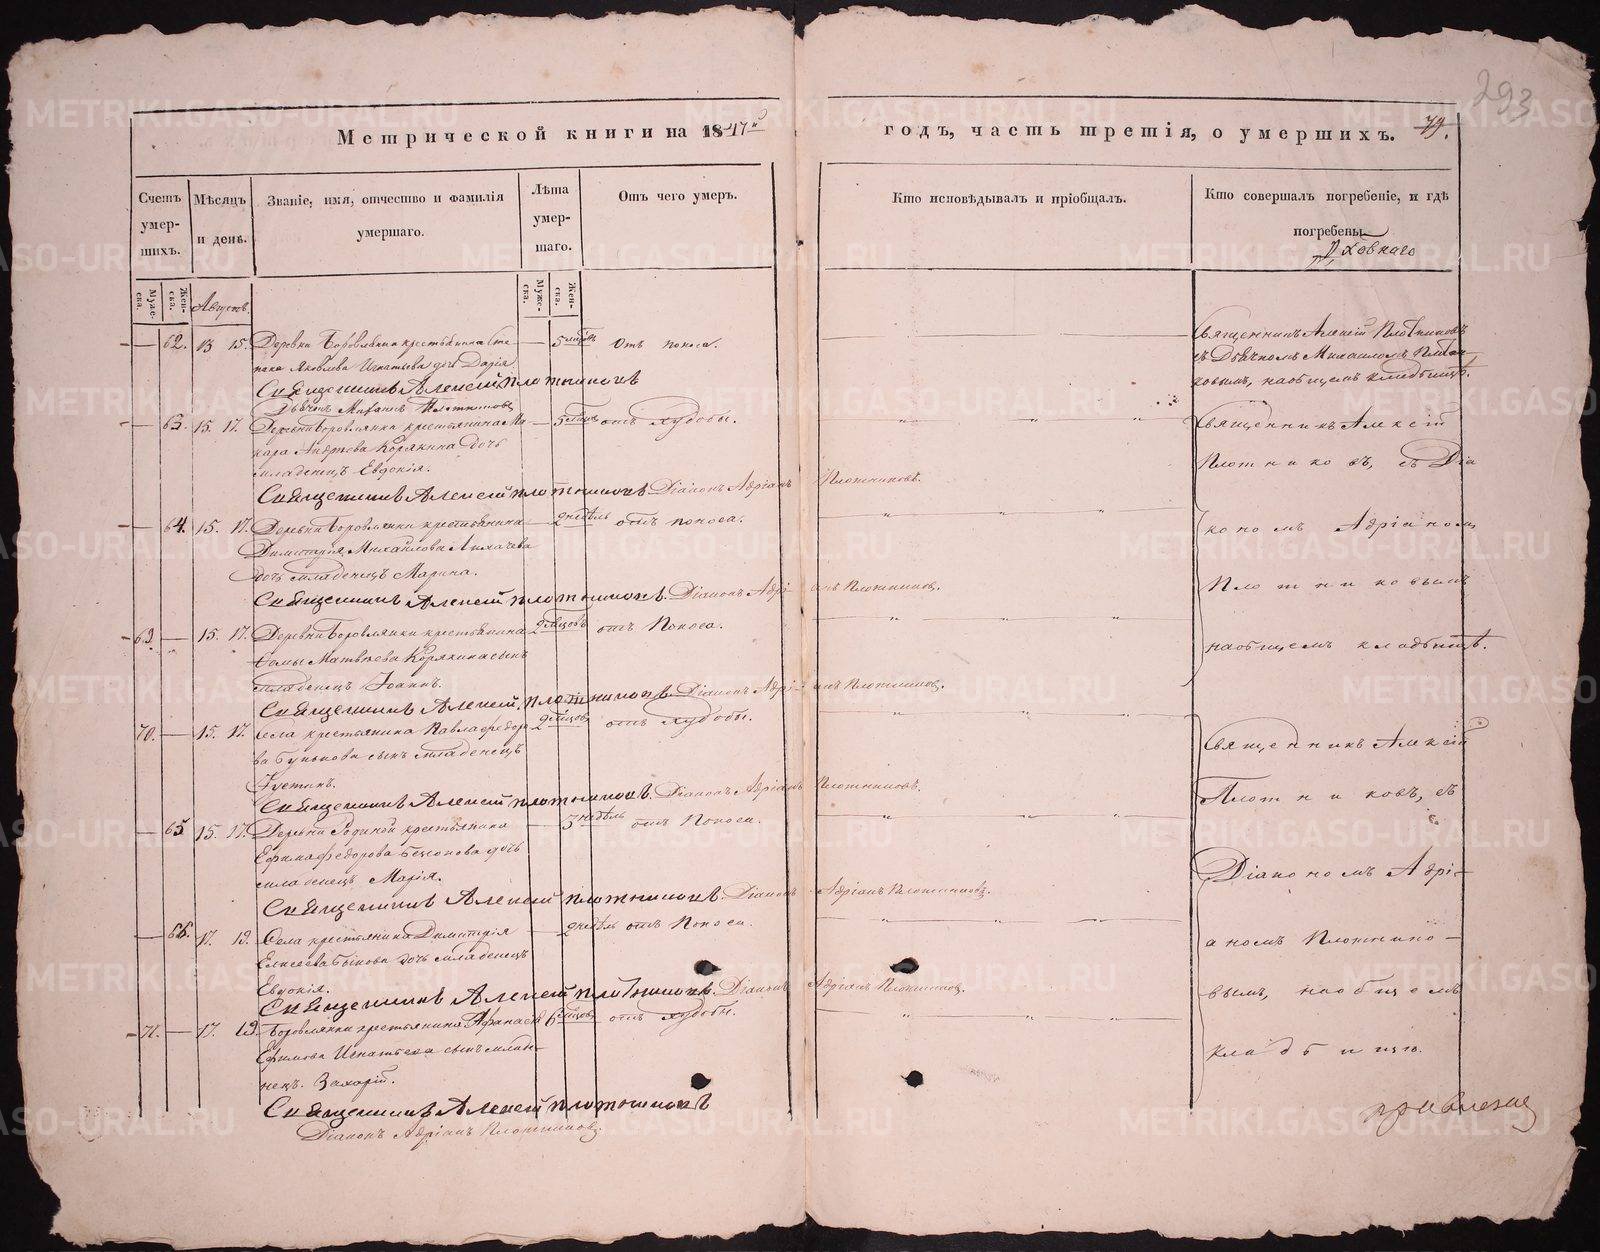 293
Метрической книги на 1847й годъ, часть третія, о умершихъ. 79.
Счетъ умершихъ.
Мѣсяцъ и день.
Званіе, имя, отчество и фамилія умершаго.
Лѣта умершаго.
Отъ чего умеръ.
Кто исповѣдывалъ и пріобщалъ.
Кто совершалъ погребеніе, и гдѣ погребены.
Муже-ска.
Жен-ска.
Августъ.
Муже-ска.
Жен-ска.
— 62. 13 15. Деревни Боровлянки крестьянина Сте — 5 отъ поноса.
пана Яковлева Игнатьева дочь Дарія
Священникъ Алексій Плотниковъ
Дьячекъ Михаилъ Плотниковъ
Священникъ Алексій Плотниковъ
съ Дьячкомъ Михаиломъ Плотни
ковымъ, на общемъ кладбищѣ.
— 63. 15. 17. Деревни Боровлянки крестьянина Ма — 5 отъ худобы.
кара Андреева Корякина дочь
младенецъ Евдокія.
Священникъ Алексій Плотниковъ. Діаконъ Адріанъ Плотниковъ.
— 64. 15. 17. Деревни Боровлянки крестьянина — 2 недѣль отъ поноса.
Димитрія Михайлова Лихачева
дочь младенецъ Марина.
Священникъ Алексій Плотниковъ. Діаконъ Адріанъ Плотниковъ.
69. — 15. 17. Деревни Боровлянки крестьянина 2 мѣсцовъ отъ Поноса.
Ѳомы Матвѣева Корякина сынъ
младенецъ Іоаннъ.
Священникъ Алексій Плотниковъ. Діаконъ Адріанъ Плотниковъ.
Священникъ Алексій
Плотниковъ, съ Діа
кономъ Адріаномъ
Плотниковымъ
на общемъ кладбищѣ.
70. — 15. 17. Села крестьянина Павла Ѳедоро 2 мѣсцовъ отъ худобы.
ва Бунькова сынъ младенецъ
Іустинъ.
Священникъ Алексій Плотниковъ. Діаконъ Адріанъ Плотниковъ.
— 65 15. 17. Деревни Родиной крестьянина — 3 недѣль отъ Поноса.
Ефима Ѳедорова дочь
младенецъ Марія.
Священникъ Алексій Плотниковъ. Діаконъ Адріанъ Плотниковъ.
— 66. 17. 19. Села крестьянина Димитрія — 2 недѣль отъ Поноса.
Елисеева Быкова дочь младенецъ
Евдокія.
Священникъ Алексій Плотниковъ. Діаконъ Адріанъ Плотниковъ.
71. — 17. 19. Боровлянки крестьянина Афанасія 6 мѣсцовъ отъ худобы.
Ефимова Игнатьева сынъ младе
нецъ Захарій.
Священникъ Алексій Плотниковъ
Діаконъ Адріанъ Плотниковъ.
Священникъ Алексій
Плотниковъ, съ
Діакономъ Адрі-
аномъ Плотнико-
вымъ, на общемъ
кладбищѣ.
METRIKI.GASO-URAL.RU